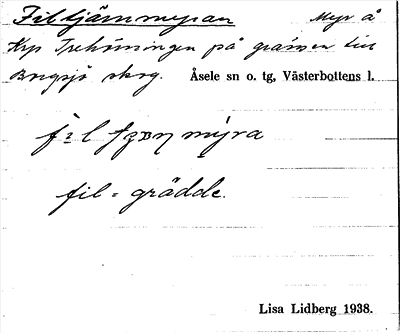 Filtjärnmyran Myr å
Krp Trehörningen på gränsen till
Borgsjö skog. Åsele sn o. tg, Västerbottens l.
fil = grädde.
Lisa Lidberg 1938.